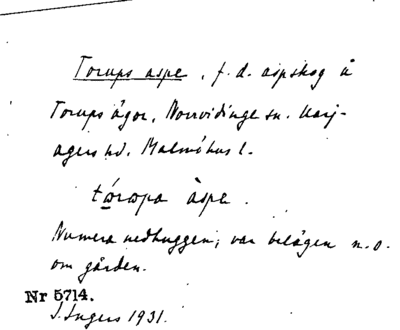 Torups aspe, f.d. aspskog å
Torups ägor, Norrvidinge sn. Harj-
agers hd. Malmöhus l.
tórωpa àspa.
Numera nedhuggen; var belägen n.o.
om gården.
Nr 5714.
I. Ingers 1931.